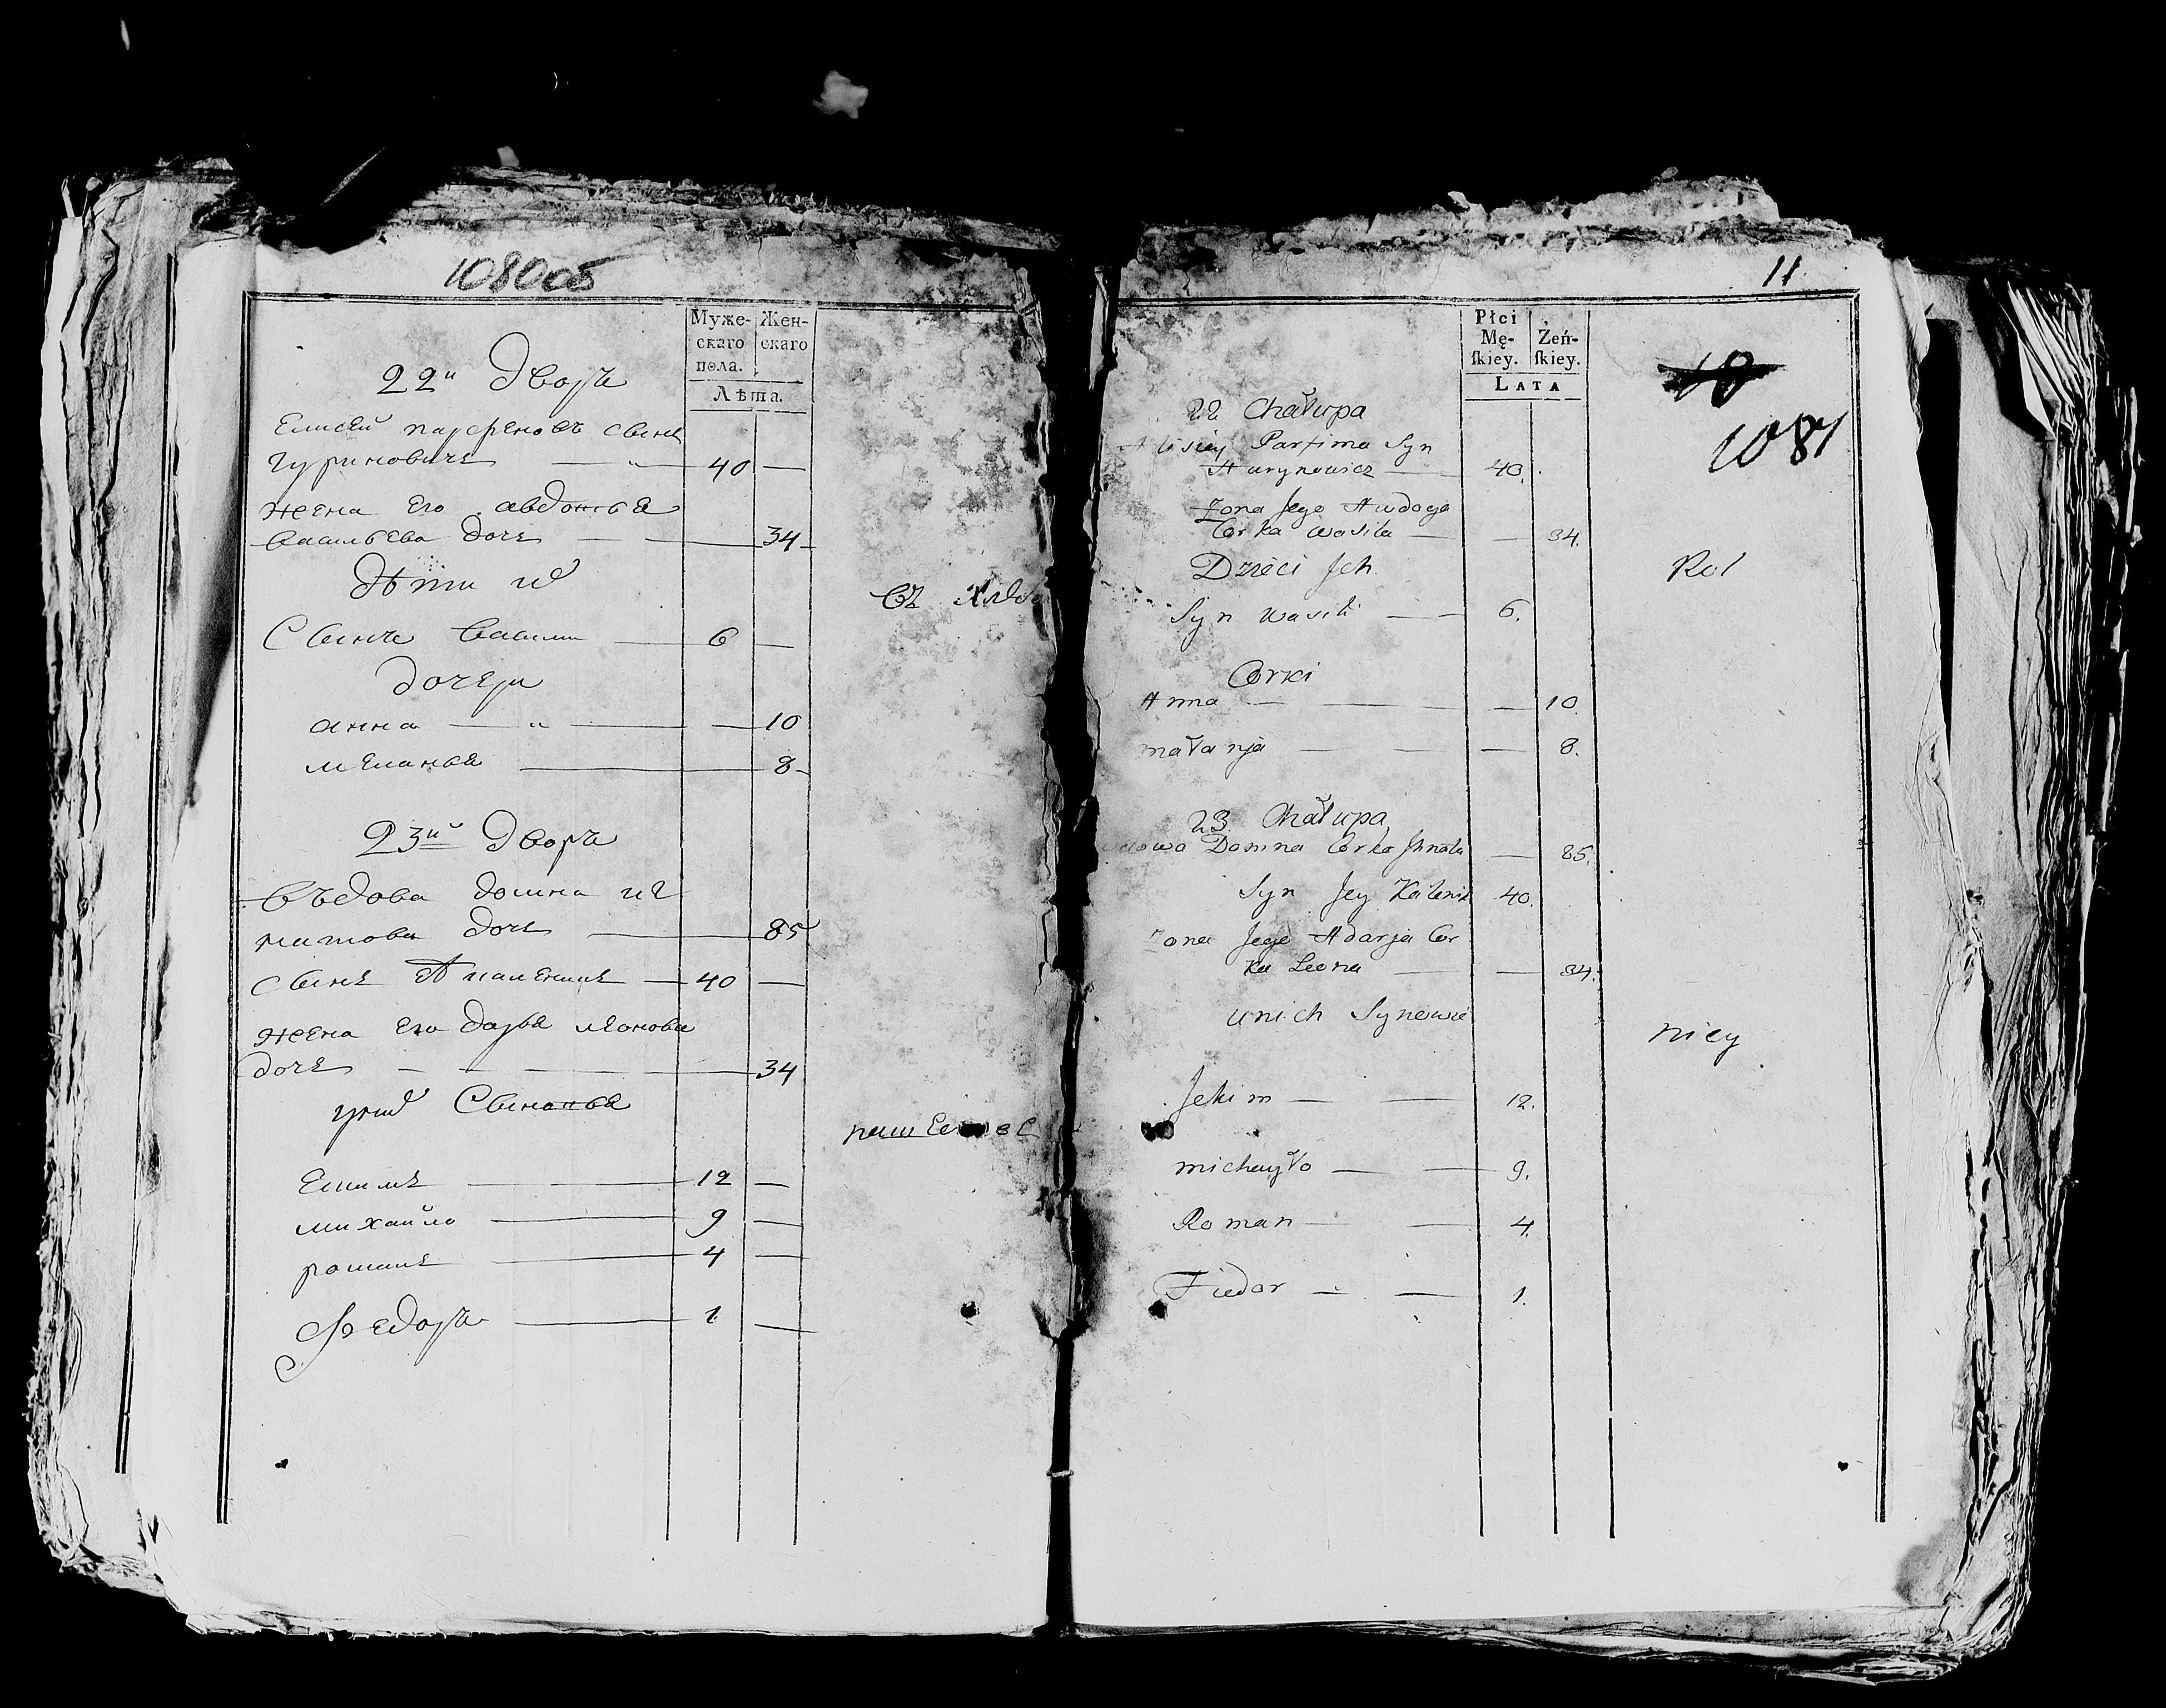 1080об
Муже-
скаго
пола.
Жен-
скаго
Лѣта.
22й Дворъ
Елисей парфеновъ сынъ
Гуриновичъ 40
жена Его авдотья
васильева дочь 34
Дѣти их
Сынъ василий 6
дочери
анна 10
меланья 8
23й Дворъ
въдова домна иг
натова дочь 85
сынъ 40
жена Его дарья леонова
дочь 34
уних Сыновья
Екимъ 12
михайло 9
романъ 4
Федоръ 1
въ
11
18
1081
Płci
Mę-
ſkiey.
Żeń-
ſkiey.
LATA
22 Chałupa
Parfima Syn
Hurynowicz 40.
Zona Jego Awdoya
Corka Wasila 34.
Dzieci Jch
Rol
Syn Wasili 6.
Corki
Anna 10
małanja 8.
23 Chałupa
Domna Corka Jhnata 85.
Syn Jey Kalenik 40.
Zona Jego Adarja Cor
ka Leona 34.
unich Synowie
niey
Jekim 12.
michayło 9.
Roman 4.
Fiedor 1.